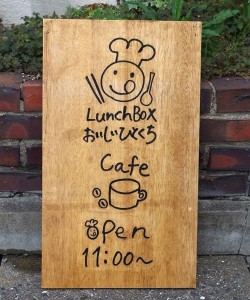 LunchBox
おいしいひとくち
Cafe
Open
11:00～